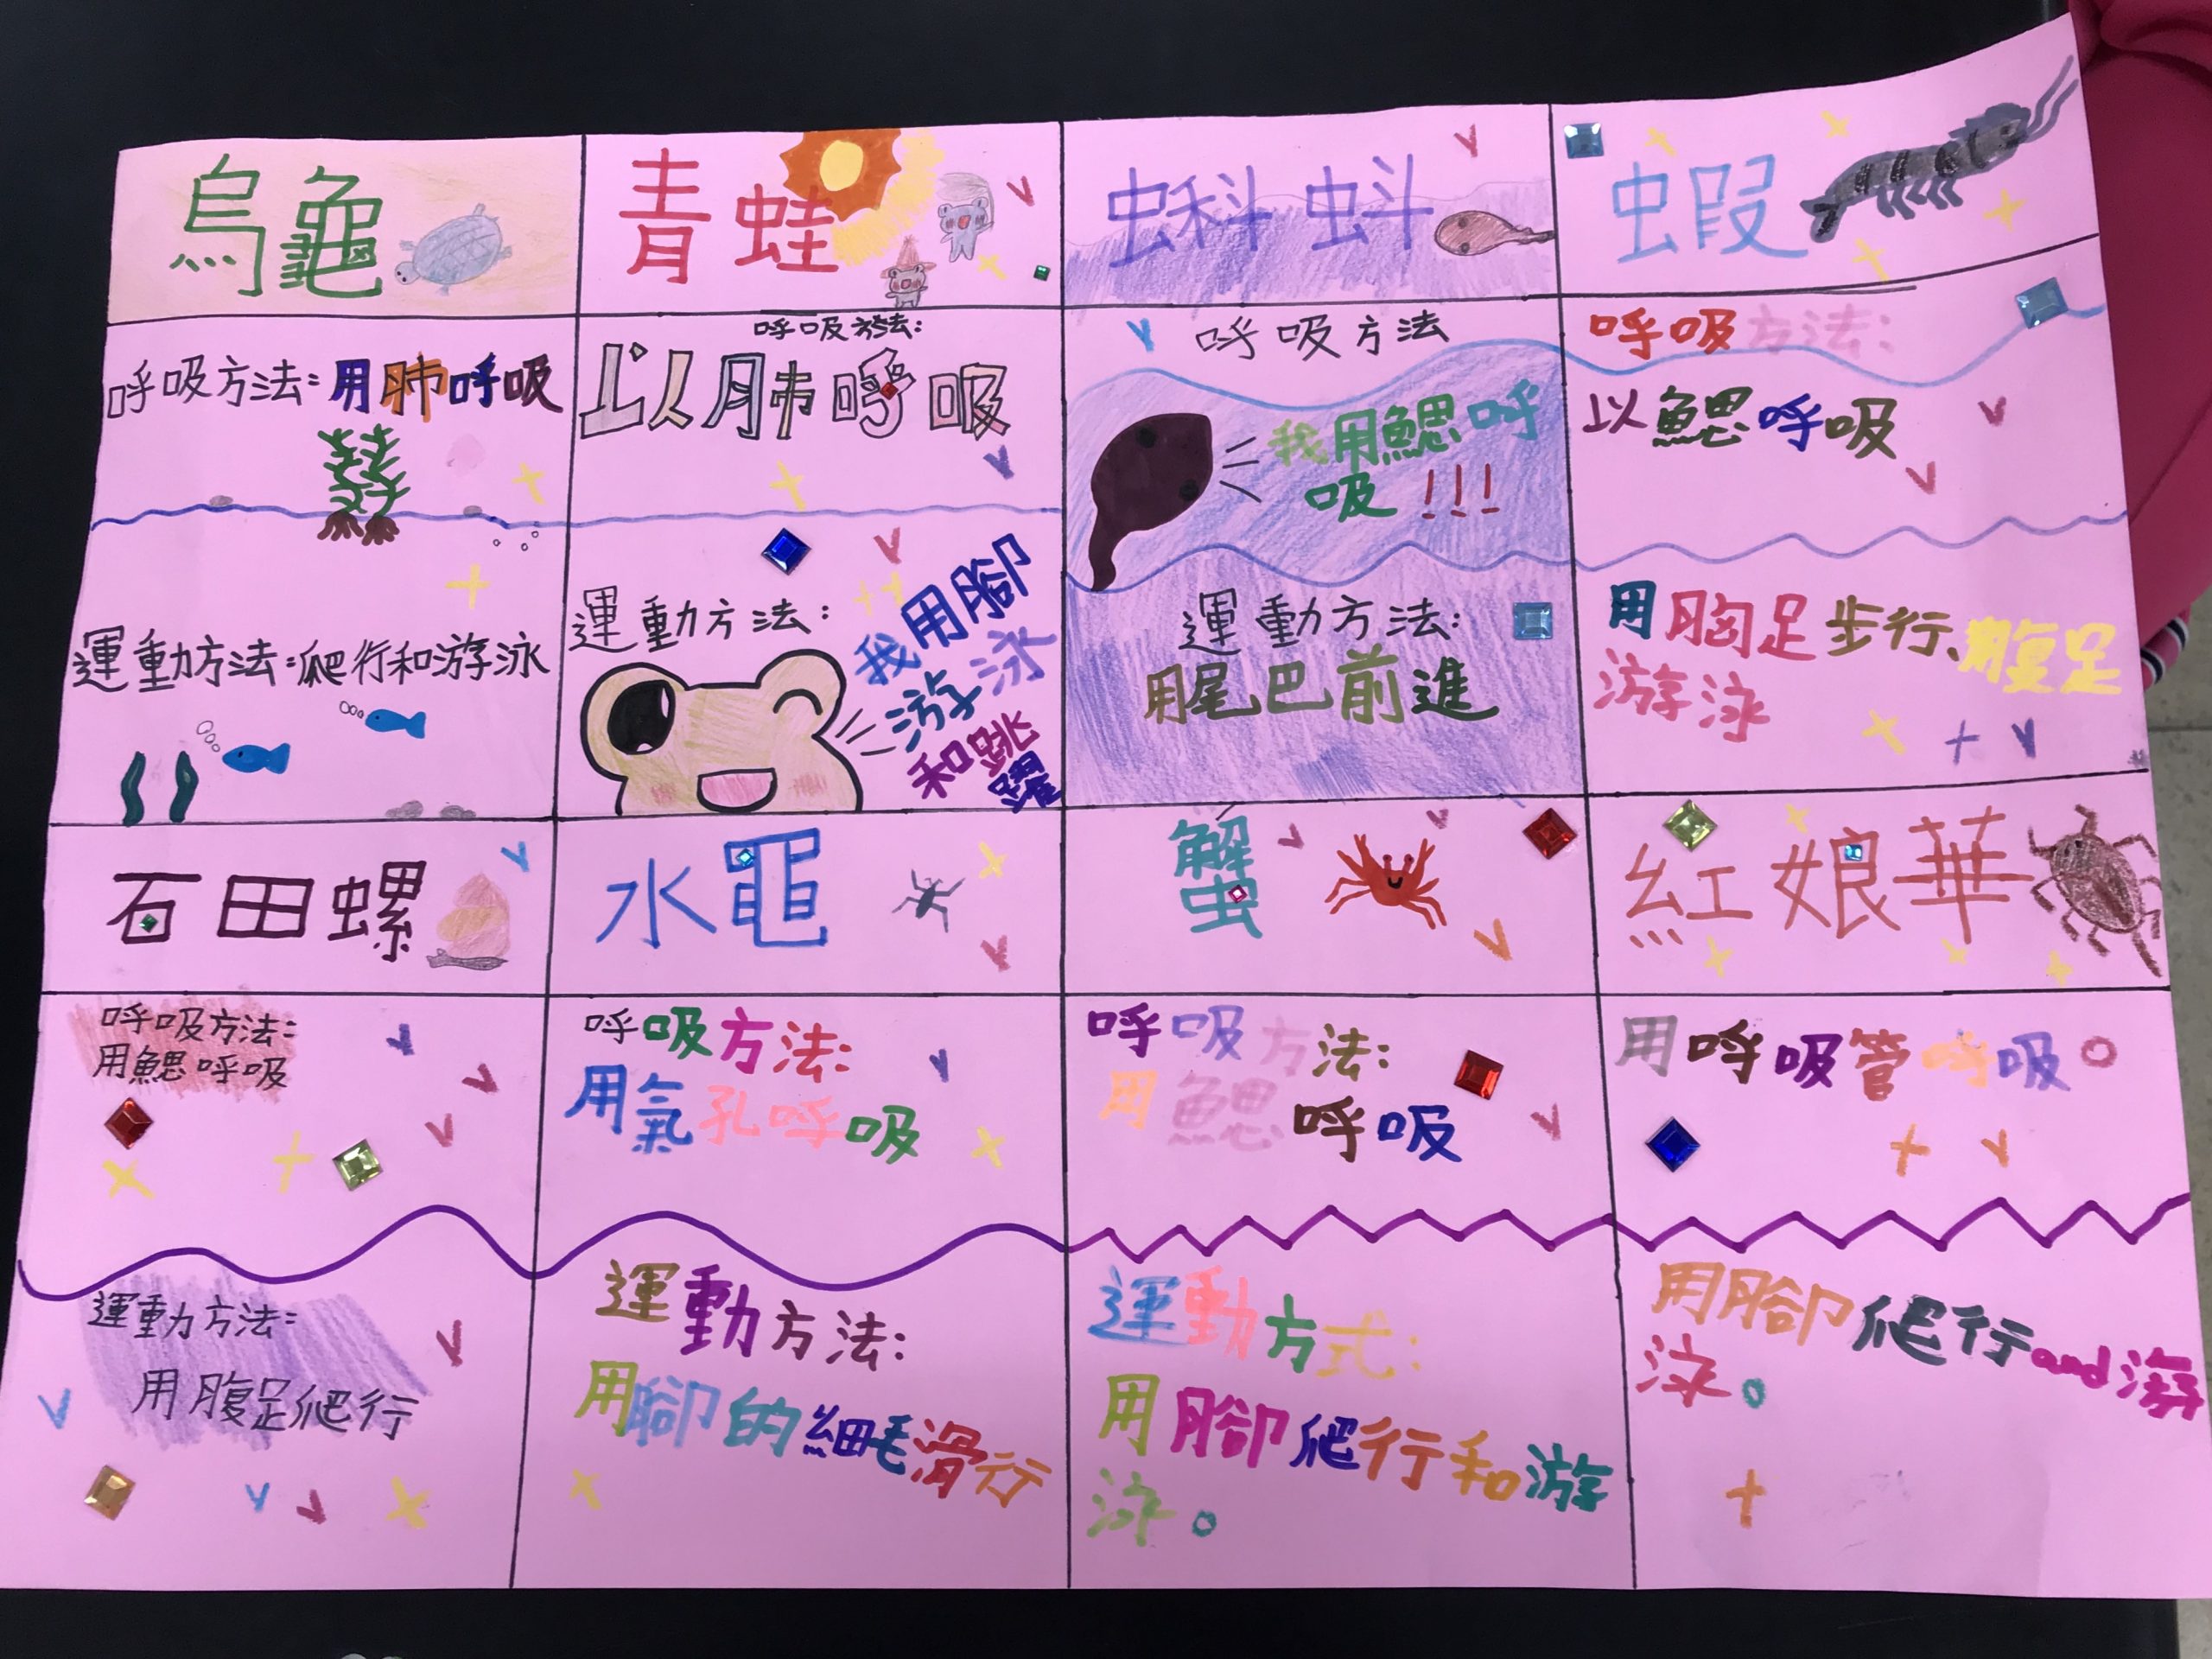 烏龜
呼吸方法:用肺呼吸
運動方法:爬行和游泳
青蛙
呼吸方法:
以肺呼吸
運動方法:
我用腳
游泳
和跳
躍
蝌蚪
呼吸方法
我用鰓呼
吸!!!
運動方法:
用尾巴前進
蝦
呼吸方法:
以鰓呼吸
用胸足步行、腹足
游泳
石田螺
呼吸方法:
用鰓呼吸
運動方法:
用腹足爬行
水黽
呼吸方法:
用氣孔呼吸
運動方法:
用腳的細毛滑行
蟹
呼吸方法:
用鰓呼吸
運動方式:
用腳爬行和游
泳。
紅娘華
用呼吸管呼吸。
用腳爬行and游
泳。